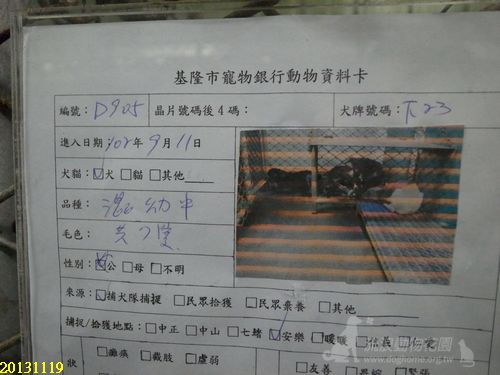 基隆市寵物銀行動物資料卡
編號：D905 晶片號碼後4碼： 犬牌號碼：下23
進入日期：102年9月11日
犬貓：☑犬 □貓 □其他
品種：混幼中
毛色：
性別：☑公 □母 □不明
來源：☑捕犬隊捕捉 □民眾拾獲 □民眾棄養 □其他
捕捉/拾獲地點：□中正 □中山 □七堵 ☑安樂 □暖暖 □信義 □仁愛
狀 □癱瘓 □截肢 □虛弱 □友善 □緊張
流浪動物花園
www.doghome.org.tw
20131119